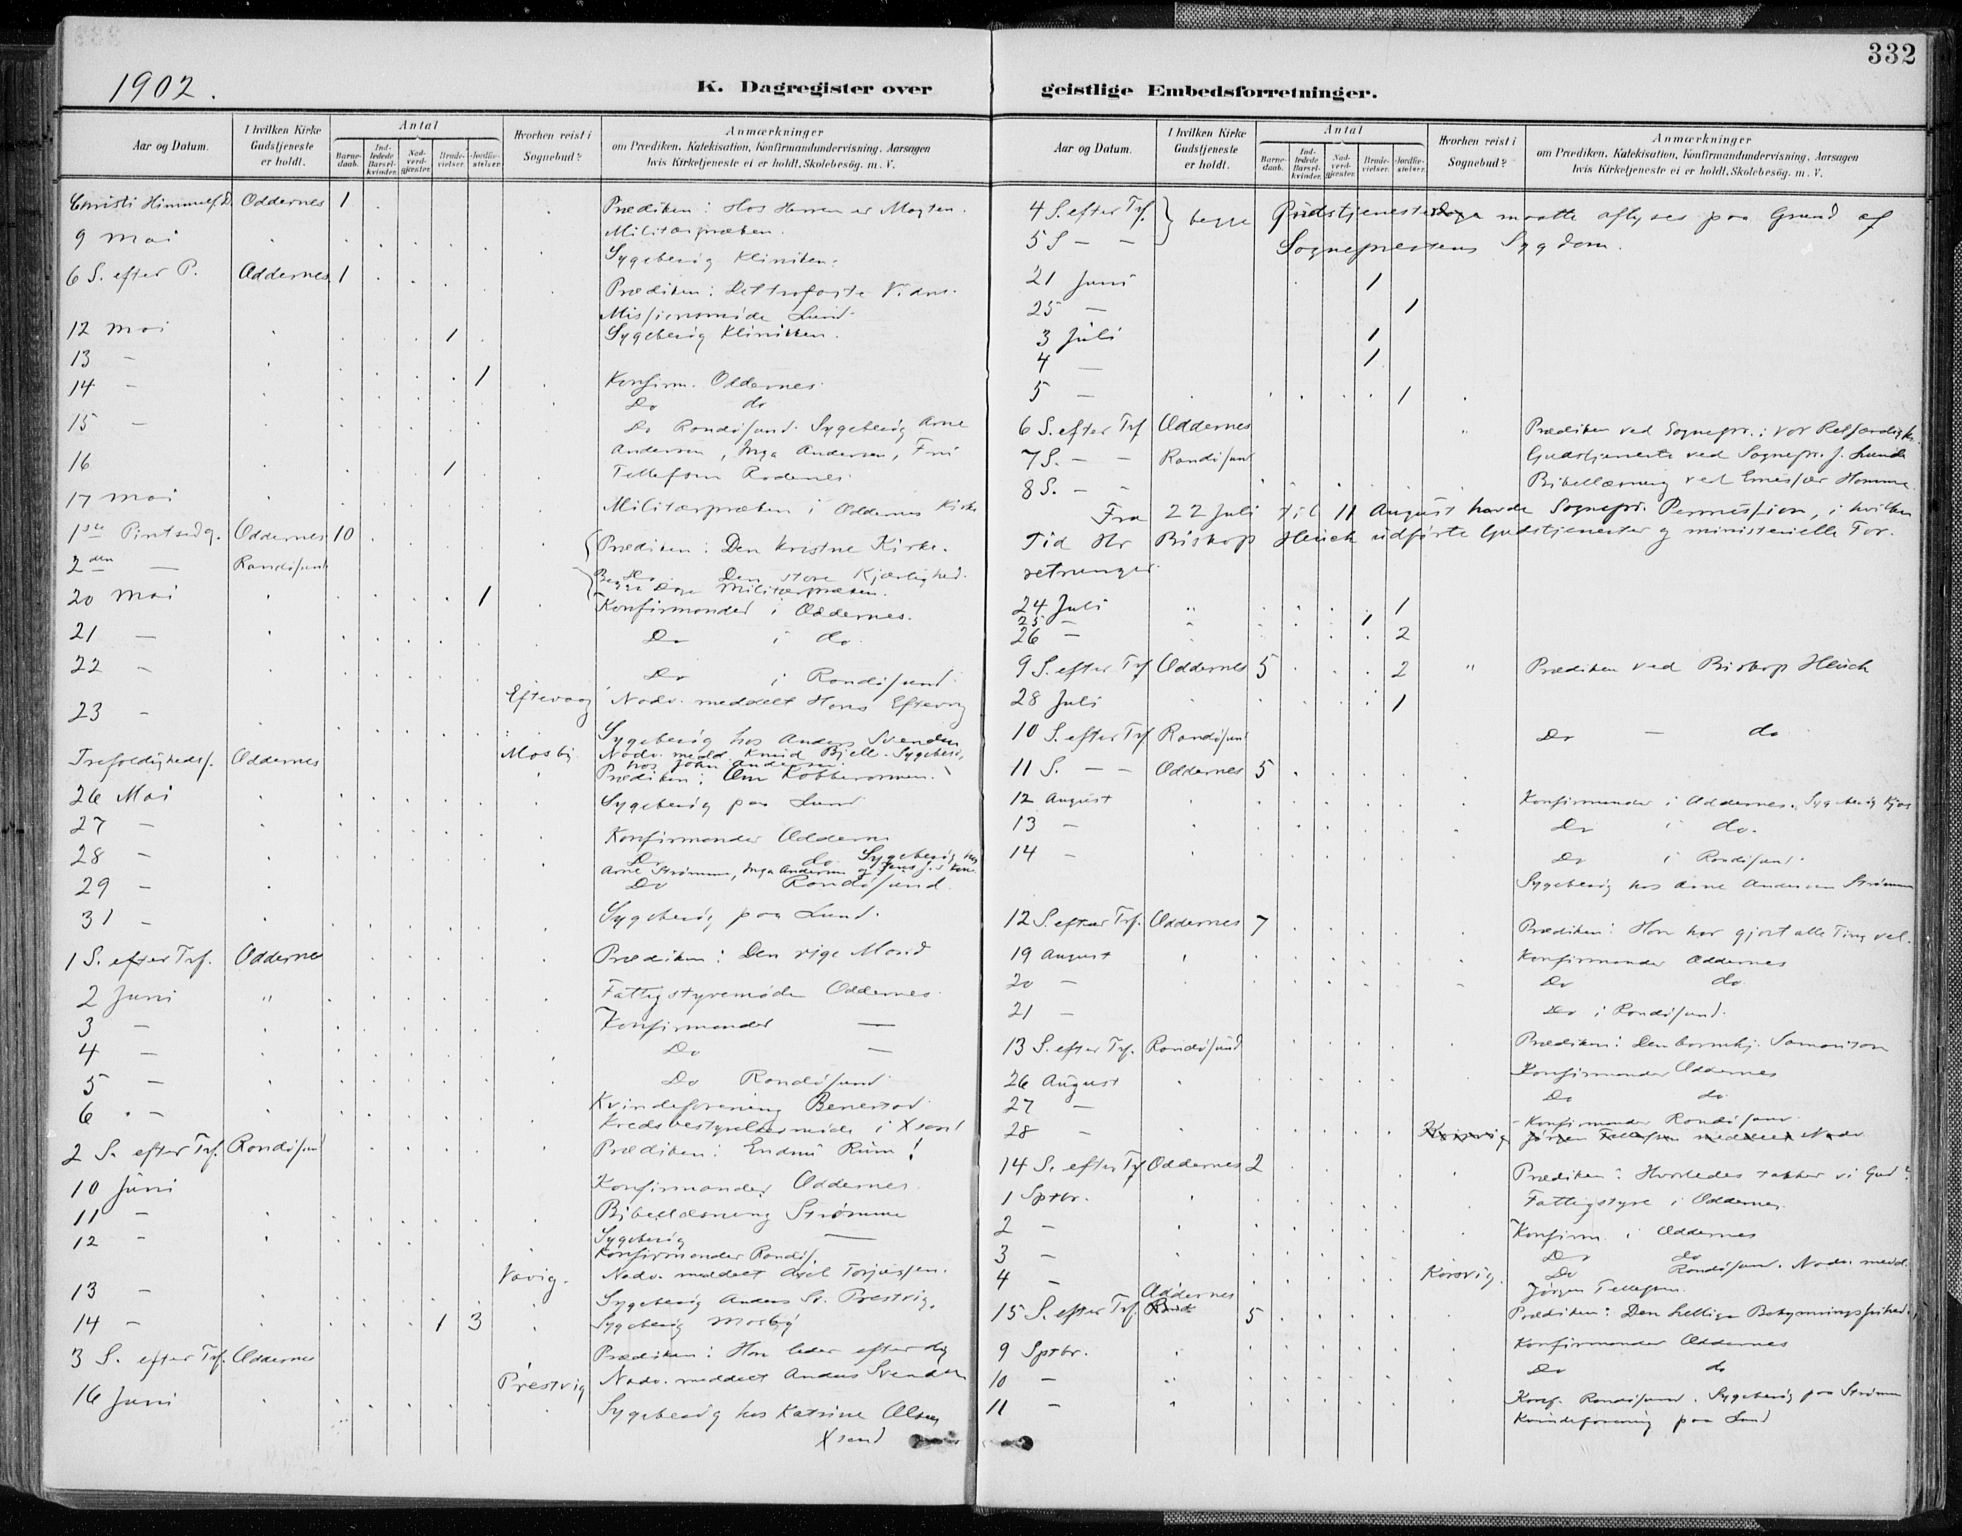 332
1902.
K. Dagregister over geistlige Embedsforretninger.
Aar og Datum.
I hvilken Kirke Gudstjeneste er holdt.
Antal
Barnedaab.
Indledede Barselkvinder.
Nadverdgjæster.
Brudevielser.
Jordfæstelser.
Hvorhen reist i Sognebud?
Anmærkninger
om Prædiken, Katekisation, Konfirmandundervisning, Aarsagen
hvis Kirketjeneste ei er holdt, Skolebesøg. m. V.
Christi Himmelf. D. Oddernes 1 Prædiken: Hos Herren er Magten.
Militærprøken.
9 Mai Sygebesøg Kliniken.
6 S. efter P. Oddernes 1 Prædiken: Det trofaste Vidne.
Missionsmøde Lund
12 Mai 1 Sygebesøg Klinikken.
13 – 1
14 – Konfirm. Oddernes.
Do do
15 – Do Randøsund. Sygebesøg Arne
Andersen, Inga Andersen, Fru
16 1 Tellefsen Rodenes.
17 Mai Militærprøken i Oddernes Kirke
1ste Pintsedg. Oddernes 10 Prædiken: Den kristne Kirke.
2den — Randøsund Do Den store Kjærlighed.
Begge Dage Militærprøken.
20 Mai 1 Konfirmander i Oddernes.
21 — Do i do.
22 – Do i Randøsund.
23 – Eftevaag Nadv. meddelt Hans Eftevaag
Sygebesøg hos Anders Svendsen
Mosby Nadv. medd. Knud Bjelle. Sygebesø.
hos John Andersen
Trefoldighedss. Oddernes Prædiken: Om Kobberormen.
26 Mai Sygebesøg paa Lund
27 – Konfirmander Oddernes
28 – Do do Sygebesøg hos
Arne Strømme, Inga Andersen og
29 – Do Randøsund.
31 – Sygebesøg paa Lund.
1 S. efter Trf. Oddernes Prædiken: Den rige Mand
2 Juni " Fattigstyremøde Oddernes.
3 — Konfirmander —
4 — Do —
5 — Do Randøsund
6 – Kvindeforening Benestad.
Kredsbestyrelsesmøde i Xsand
2 S. efter Trf. Randøsund Prædiken: Endnu Rum!
10 Juni Konfirmander Oddernes.
11 – Bibellæsning Strømme
12 – Sygebesøg —
Konfirmander Randøs.
Vaavig. Nadv. meddelt Axel Torjussen.
13 – Sygebesøg Anders Sv. Prestvig.
14 – 1 3 Sygebesøg Mosby
3 S. efter Trf. Oddernes Prædiken: Han leder efter dig
Prestvig Nadv. meddelt Anders Svendsen
16 Juni Sygebesøg hos Katrine Olsen
Xsand
Aar og Datum.
I hvilken Kirke Gudstjeneste er holdt.
Antal
Barnedaab.
Indledede Barselkvinder.
Nadverdgjæster.
Brudevielser.
Jordfæstelser.
Hvorhen reist i Sognebud?
Anmærkninger
om Prædiken, Katekisation, Konfirmandundervisning, Aarsagen
hvis Kirketjeneste ei er holdt, Skolebesøg. m. V.
4 S. efter Trf. } begge Gudstjenester maatte aflyses paa Grund af
5 S – – Sogneprestens Sygdom.
21 Juni 1
25 – 1
3 Juli 1
4 — 1
5 – 1
6 S. efter Trf Oddernes " Prædiken ved Sognepr.: Vor Retfærdigh.
7 S. – – Randøsund Gudstjeneste ved Sognepr. J. Lunde
8 S. – – Bibellæsning ved Emissær Homme.
Fra 22 Juli til 11 August havde Sognepr. Permission, i hvilken
Tid Hr Biskop Heuch udførte Gudstjenester og ministerielle For-
retninger.
24 Juli " 1
25 – " 1
26 – 2
9 S. efter Trf Oddernes 5 2 " Prædiken ved Biskop Heuch
28 Juli 1
10 S. efter Trf Randøsund Do – do
11 S. – – Oddernes 5
12 August Konfirmander i Oddernes. Sygebesøg Kjos
13 – Do i do.
14 – Do i Randøsund.
Sygebesøg hos Arne Andersen Strømme
12 S. efter Trf. Oddernes 7 Prædiken: Han har gjort alle Ting vel.
19 August Konfirmander Oddernes
20 – Do do.
21 – Do i Randøsund.
13 S. efter Trf. Randøsund Prædiken: Den barmhj. Samaritan
26 August Konfirmander Oddernes
27 – Do do.
28 – Konfirmander Randøsund.
Korsvig Jørgen Tellefsen meddelt Nadv
14 S. efter Trf Oddernes 2 Prædiken: Hvorledes takker vi Gud?
1 Sptbr. Fattigstyre i Oddernes.
2 – Konfirm. i Oddernes
3 – Do do
4 – Korsvig. Do Randøsund. Nadv. medd.
Jørgen Tellefsen.
15 S. efter Trf. Oddernes 5 Prædiken: Den hellige Bekymringsfrihed.
9 Sptbr. Konfirmander Oddernes
10 – Do do
11 – Konf. Randøsund. Sygebesøg paa Strømme
Kvindeforening paa Lund